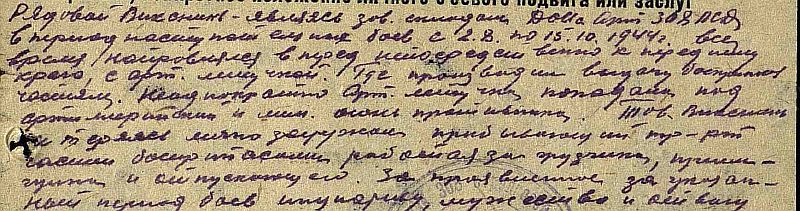 краткое изложение личного боевого подвига или заслуг
Рядовой - являясь зав. складом ДОПа арт 308 ЛСД
в период наступательных боев с 2.8. по 15.10.1944г. все
время направлялся вперед непосредственно к переднему
краю, с арт. летучкой. Где производил выдачу боеприпасов
частям. Неоднократно Арт. летучка попадала под
артиллерийский и мин. огонь противника. Тов.
не теряясь лично загружал прибывающий тр-рт
частей боеприпасами работая за грузчика,
и отпускающего. За проявленное за указан-
ный период боев инициативу, мужество и отвагу